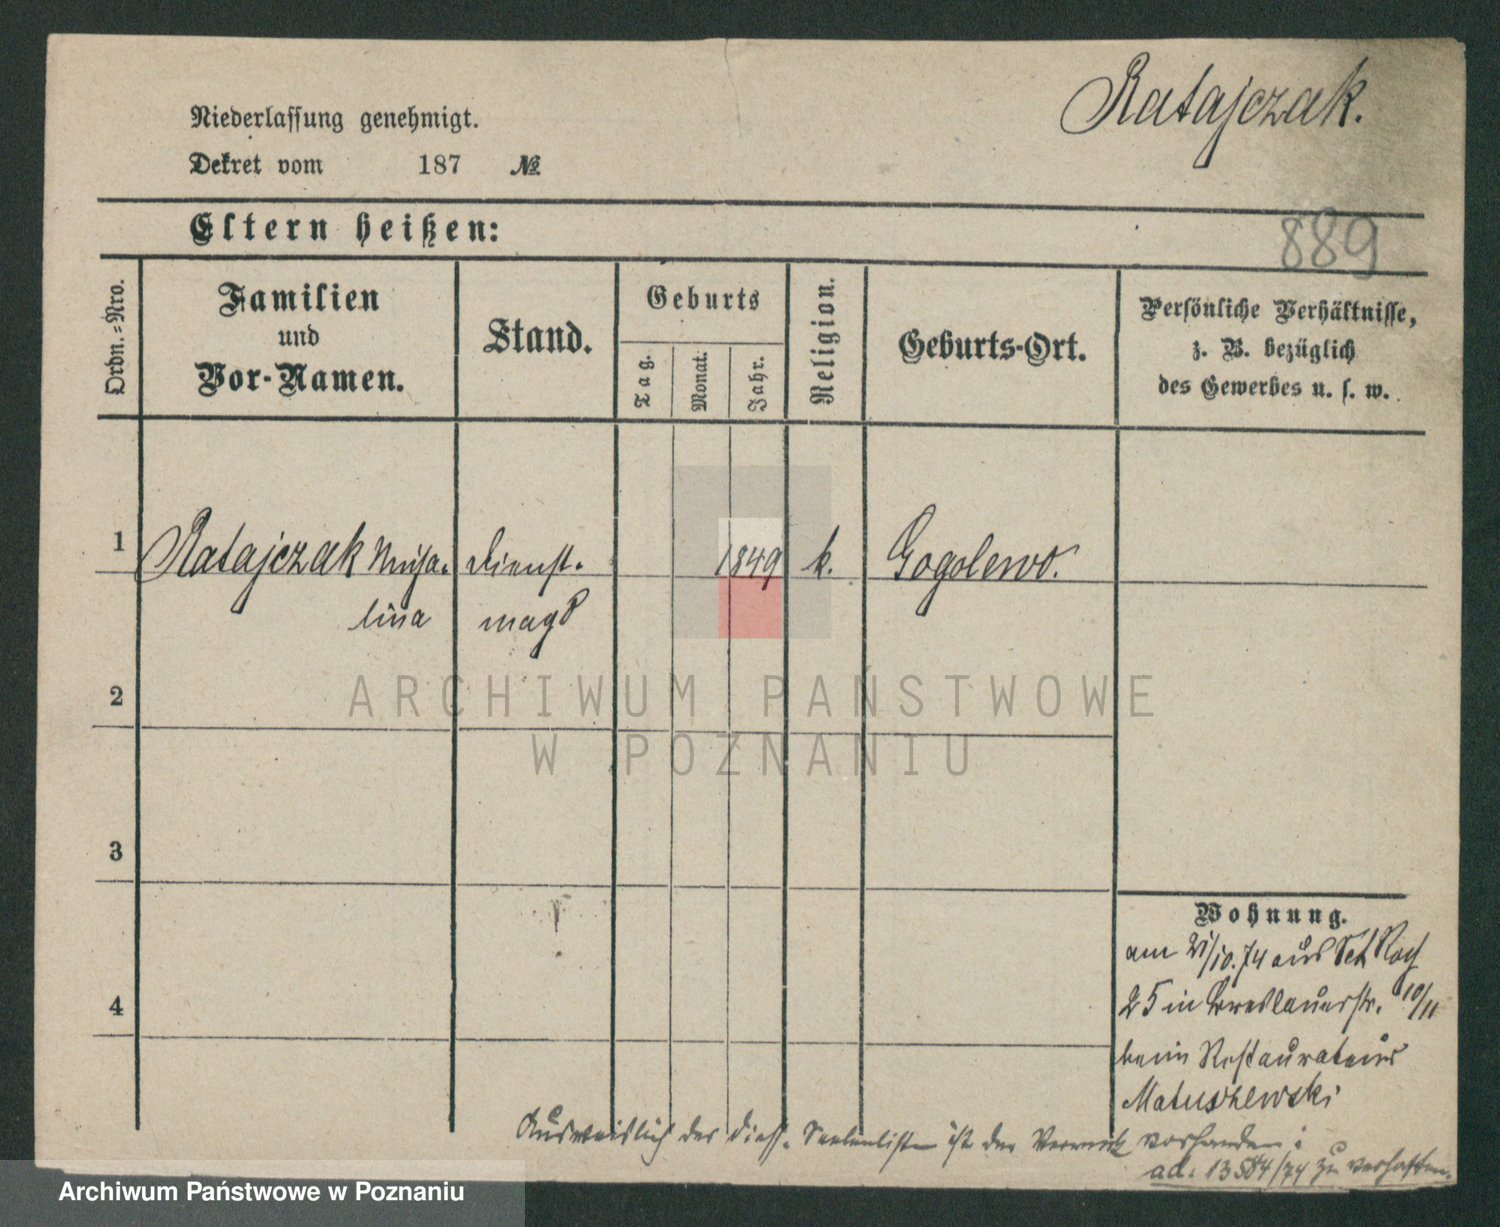 Ratajczak.
Niederlassung genehmigt.
Dekret vom 187 №
889
Eltern heißen:
Ordn.=Nro.
Familien
und
Vor-Namen.
Stand.
Geburts
Tag.
Monat.
Jahr.
Religion.
Geburts-Ort.
Persönliche Verhältnisse,
z. B. bezüglich
des Gewerbes u. s. w.
1 Ratajczak Micha- Dienst- 1849 k. Gogolewo.
lina magd
2
3
4
Wohnung.
am 21/10.74 aus Sct Roch
25 in Breslauerstr. 10/11
beim Restaurateur
Matuszewski
Ausweislich der dies. Seelenliste ist der Vermerk vorhanden:
ad. 1384/74 zu verhaften.
ARCHIWUM PAŃSTWOWE
W POZNANIU
Archiwum Państwowe w Poznaniu